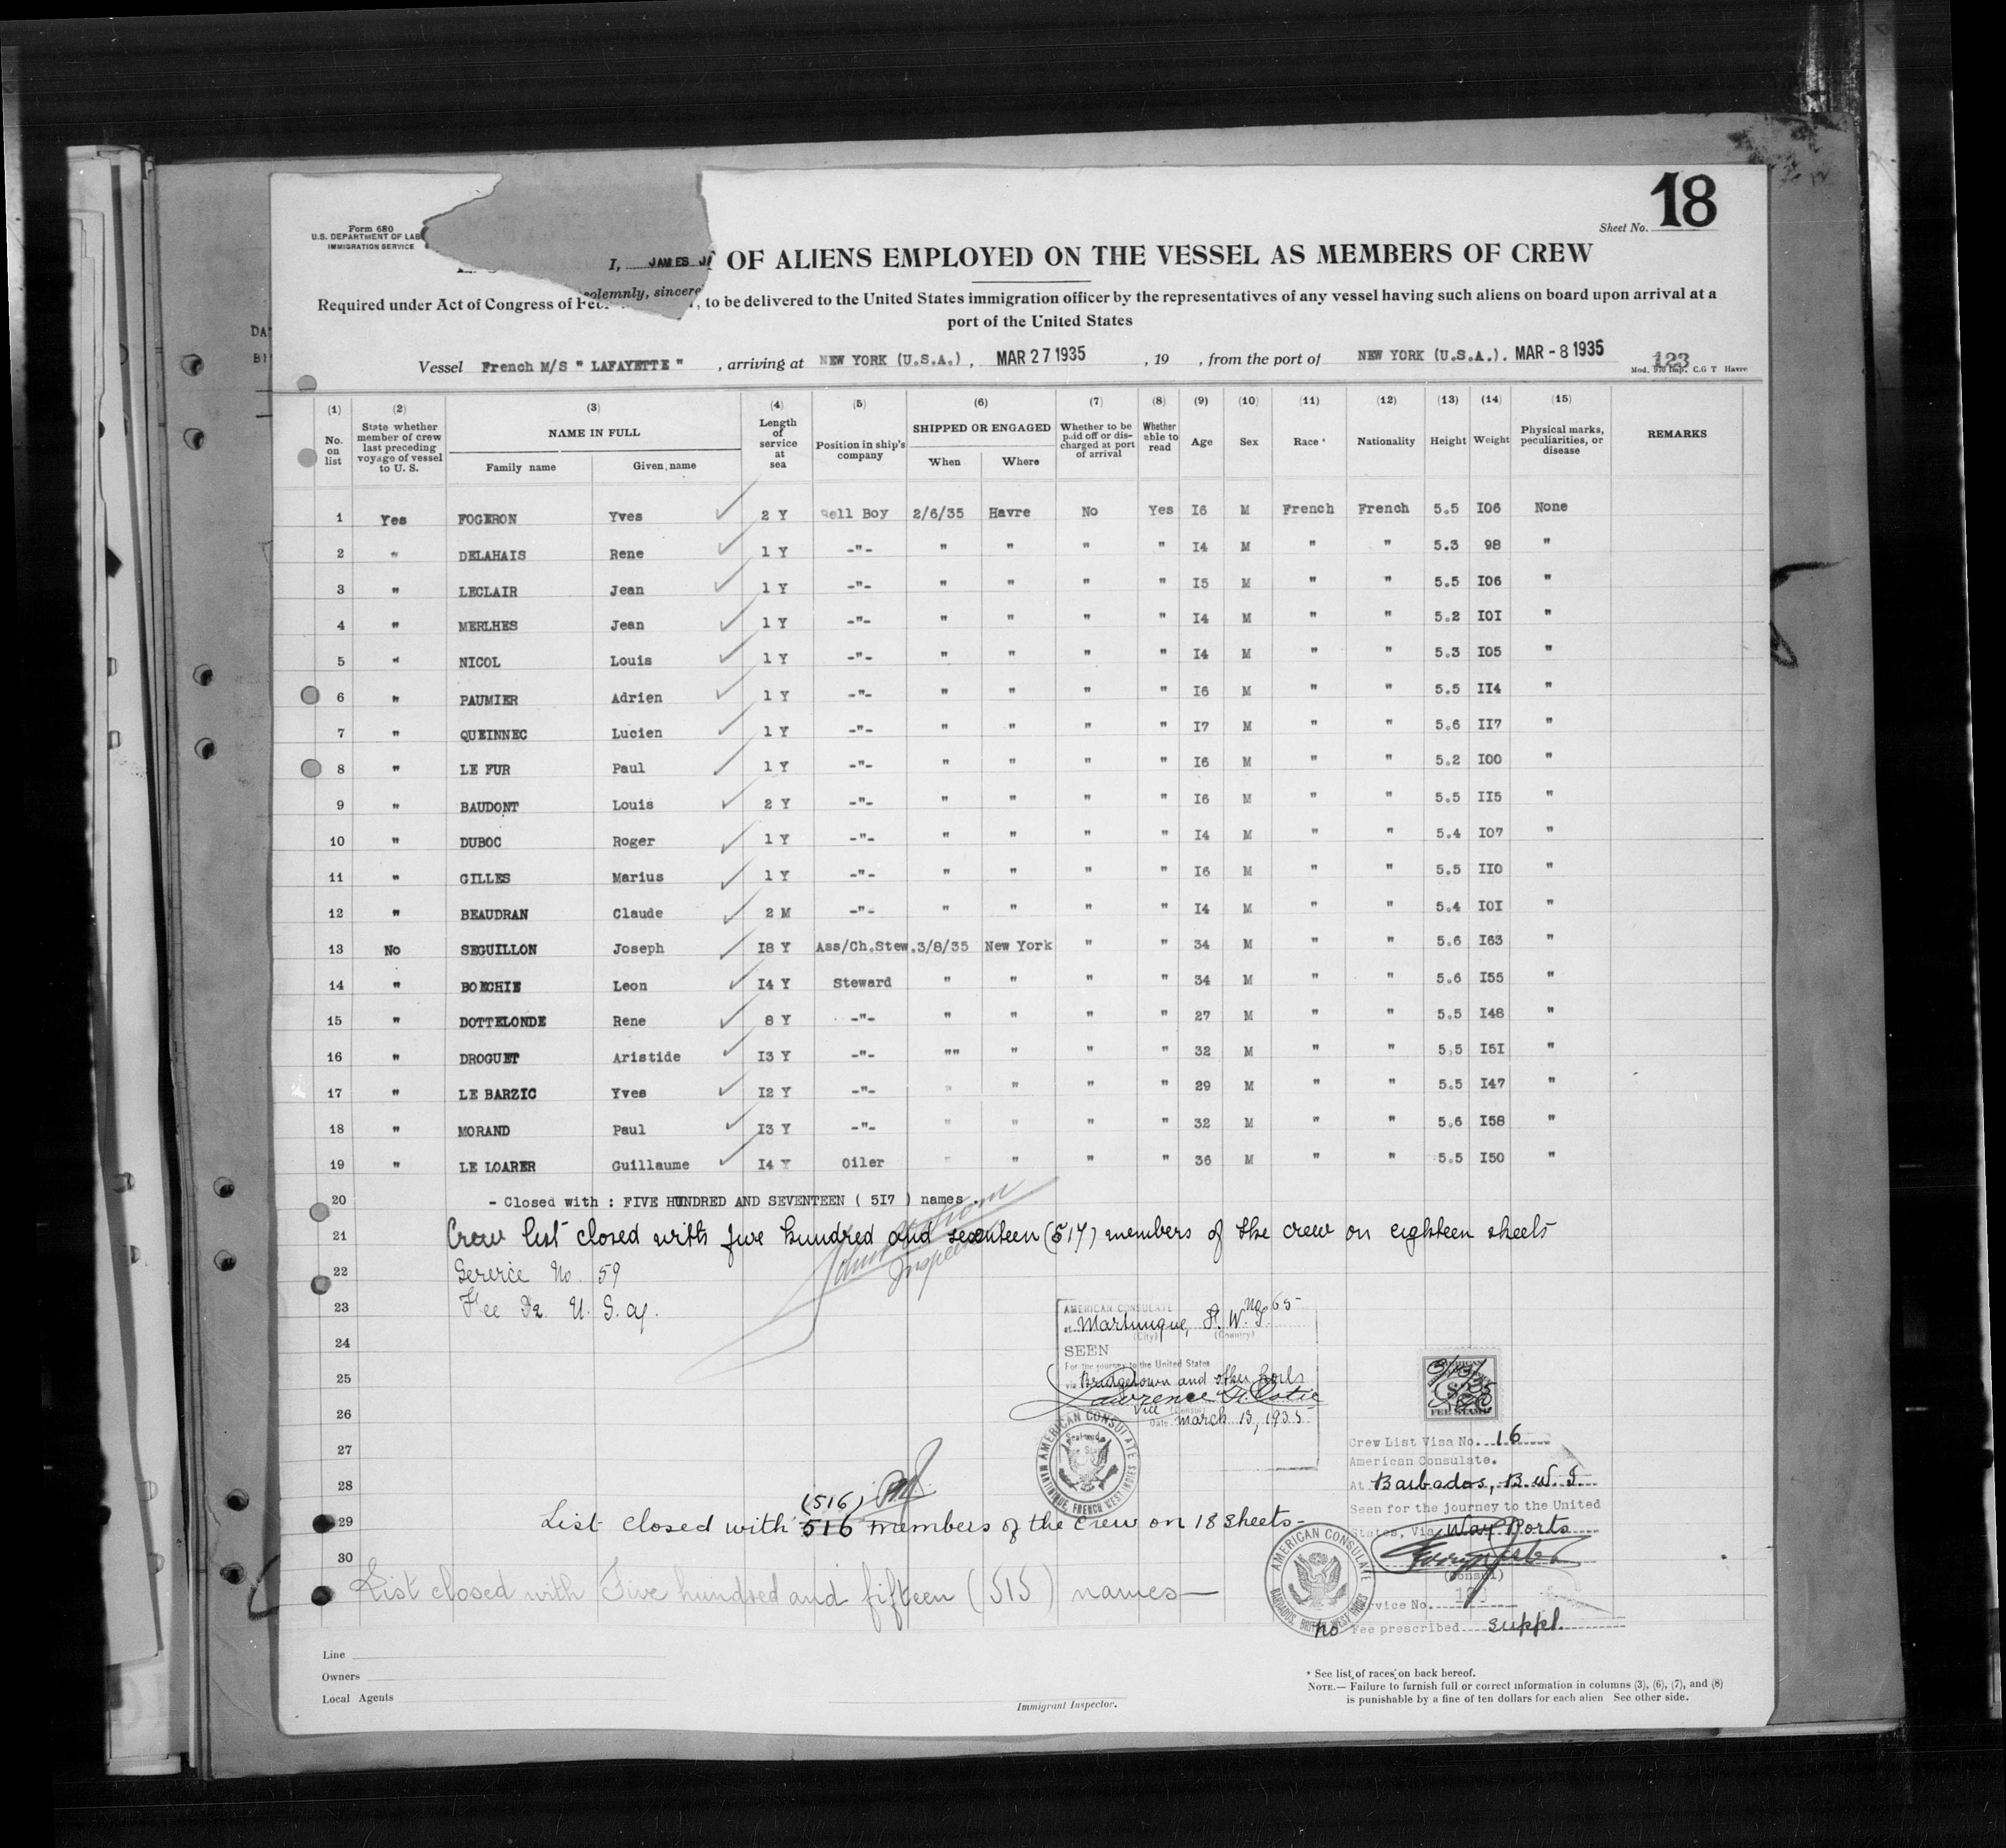 18
Sheet No.
Form 680
U.S. DEPARTMENT OF LAB
IMMIGRATION SERVICE
I, JAMES J
solemnly, sincere
OF ALIENS EMPLOYED ON THE VESSEL AS MEMBERS OF CREW
Required under Act of Congress of Feb , to be delivered to the United States immigration officer by the representatives of any vessel having such aliens on board upon arrival at a
port of the United States
Vessel French M/S " LAFAYETTE " , arriving at NEW YORK (U.S.A.) , MAR 27 1935 , 19 , from the port of NEW YORK (U.S.A.). MAR - 8 1935
123
Mod. 970 Imp. C.G T Havre
(1) (2) (3) (4) (5) (6) (7) (8) (9) (10) (11) (12) (13) (14) (15)
No. on list State whether member of crew last preceding voyage of vessel to U. S. NAME IN FULL Family name Given name Length of service at sea Position in ship's company SHIPPED OR ENGAGED When Where Whether to be paid off or discharged at port of arrival Whether able to read Age Sex Race * Nationality Height Weight Physical marks, peculiarities, or disease REMARKS
1 Yes FOGERON Yves 2 Y Bell Boy 2/6/35 Havre No Yes I6 M French French 5.5 I06 None
2 " DELAHAIS Rene 1 Y -"- " " " " I4 M " " 5.3 98 "
3 " LECLAIR Jean 1 Y -"- " " " " I5 M " " 5.5 I06 "
4 " MERLHES Jean 1 Y -"- " " " " I4 M " " 5.2 I0I "
5 " NICOL Louis 1 Y -"- " " " " I4 M " " 5.3 I05 "
6 " PAUMIER Adrien 1 Y -"- " " " " I6 M " " 5.5 II4 "
7 " QUEINNEC Lucien 1 Y -"- " " " " I7 M " " 5.6 II7 "
8 " LE FUR Paul 1 Y -"- " " " " I6 M " " 5.2 I00 "
9 " BAUDONT Louis 2 Y -"- " " " " I6 M " " 5.5 II5 "
10 " DUBOC Roger 1 Y -"- " " " " I4 M " " 5.4 I07 "
11 " GILLES Marius 1 Y -"- " " " " I6 M " " 5.5 II0 "
12 " BEAUDRAN Claude 2 M -"- " " " " I4 M " " 5.4 I0I "
13 No SEGUILLON Joseph I8 Y Ass/Ch.Stew. 3/8/35 New York " " 34 M " " 5.6 I63 "
14 " BOECHIE Leon I4 Y Steward " " " " 34 M " " 5.6 I55 "
15 " DOTTELONDE Rene 8 Y -"- " " " " 27 M " " 5.5 I48 "
16 " DROGUET Aristide I3 Y -"- "" " " " 32 M " " 5.5 I5I "
17 " LE BARZIC Yves I2 Y -"- " " " " 29 M " " 5.5 I47 "
18 " MORAND Paul I3 Y -"- " " " " 32 M " " 5.6 I58 "
19 " LE LOARER Guillaume I4 Y Oiler " " " " 36 M " " 5.5 I50 "
20 - Closed with : FIVE HUNDRED AND SEVENTEEN ( 5I7 ) names .
21 Crew list closed with five hundred and seventeen (517) members of the crew on eighteen sheets
Inspector
22 Service No. 59
23 Fee
24
25
26
27
28
29
30
AMERICAN CONSULATE No. 65
at Martinique, F. W. I.
(City) (Country)
SEEN
For the journey to the United States
via Bridgetown and other Ports
Vice (Consul)
Date March 13, 1935
AMERICAN CONSULATE
MARTINIQUE, FRENCH WEST INDIES
FEE STAMP
Crew List Visa No. 16
American Consulate.
At Barbados, B.W.I.
Seen for the journey to the United
States, Via Way Ports
(Consul)
Service No.
no Fee prescribed suppl.
AMERICAN CONSULATE
BARBADOS, BRITISH WEST INDIES
(516)
List closed with 516 members of the crew on 18 sheets-
List closed with Five hundred and fifteen (515) names—
Line
Owners
Local Agents
Immigrant Inspector.
* See list of races on back hereof.
NOTE.— Failure to furnish full or correct information in columns (3), (6), (7), and (8)
is punishable by a fine of ten dollars for each alien See other side.